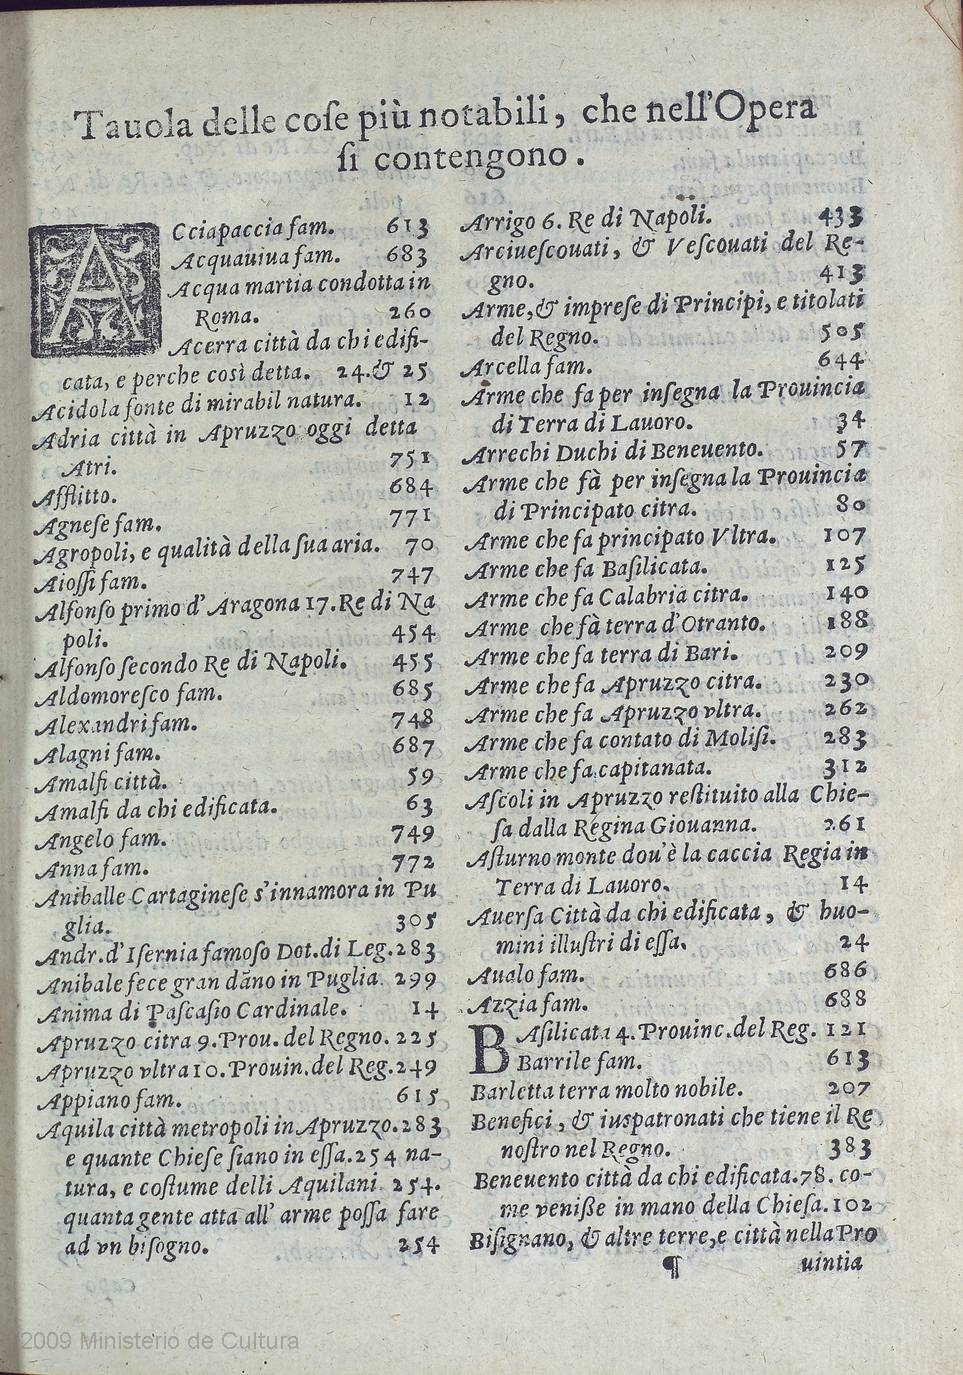 Tauola delle coſe più notabili, che nell'Opera
ſi contengono.
ACciapaccia fam. 613
Acquauiua fam. 683
Acqua martia condotta in
Roma. 260
Acerra città da chi edifi-
cata, e perche così detta. 24.& 25
Acidola fonte di mirabil natura. 12
Adria città in Apruzzo oggi detta
Atri. 751
Afflitto. 684
Agneſe fam. 771
Agropoli, e qualità della ſua aria. 70
Aioſſi fam. 747
Alfonſo primo d'Aragona 17.Re di Na
poli. 454
Alfonſo ſecondo Re di Napoli. 455
Aldomoreſco fam. 685
Alexandri fam. 748
Alagni fam. 687
Amalfi città. 59
Amalfi da chi edificata. 63
Angelo fam. 749
Anna fam. 772
Aniballe Cartagineſe s'innamora in Pu
glia. 305
Andr.d'Iſernia famoſo Dot.di Leg.283
Anibale fece gran dãno in Puglia. 299
Anima di Paſcaſio Cardinale. 14
Apruzzo citra 9.Prou.del Regno. 225
Apruzzo vltra 10.Prouin.del Reg.249
Appiano fam. 615
Aquila città metropoli in Apruzzo.283
e quante Chieſe ſiano in eſſa.254 na-
tura, e coſtume delli Aquilani 254.
quanta gente atta all' arme poſſa fare
ad vn biſogno. 254
Arrigo 6. Re di Napoli. 433
Arciueſcouati, & Veſcouati del Re-
gno. 413
Arme,& impreſe di Principi, e titolati
del Regno. 505
Arcella fam. 644
Arme che fa per inſegna la Prouincia
di Terra di Lauoro. 34
Arrechi Duchi di Beneuento. 57
Arme che fà per inſegna la Prouincia
di Principato citra. 80
Arme che fa principato Vltra. 107
Arme che fa Baſilicata. 125
Arme che fa Calabria citra. 140
Arme che fà terra d'Otranto. 188
Arme che fa terra di Bari. 209
Arme che fa Apruzzo citra. 230
Arme che fa Apruzzo vltra. 262
Arme che fa contato di Moliſi. 283
Arme che fa capitanata. 312
Aſcoli in Apruzzo reſtituito alla Chie-
ſa dalla Regina Giouanna. 261
Aſturno monte dou'è la caccia Regia in
Terra di Lauoro. 14
Auerſa Città da chi edificata, & huo-
mini illuſtri di eſſa. 24
Aualo fam. 686
Azzia fam. 688
BAſilicata 4. Prouinc.del Reg. 121
Barrile fam. 613
Barletta terra molto nobile. 207
Benefici, & iuspatronati che tiene il Re
noſtro nel Regno. 383
Beneuento città da chi edificata.78. co-
me veniſſe in mano della Chieſa.102
Biſignano, & altre terre,e città nella Pro
¶ uintia
2009 Ministerio de Cultura